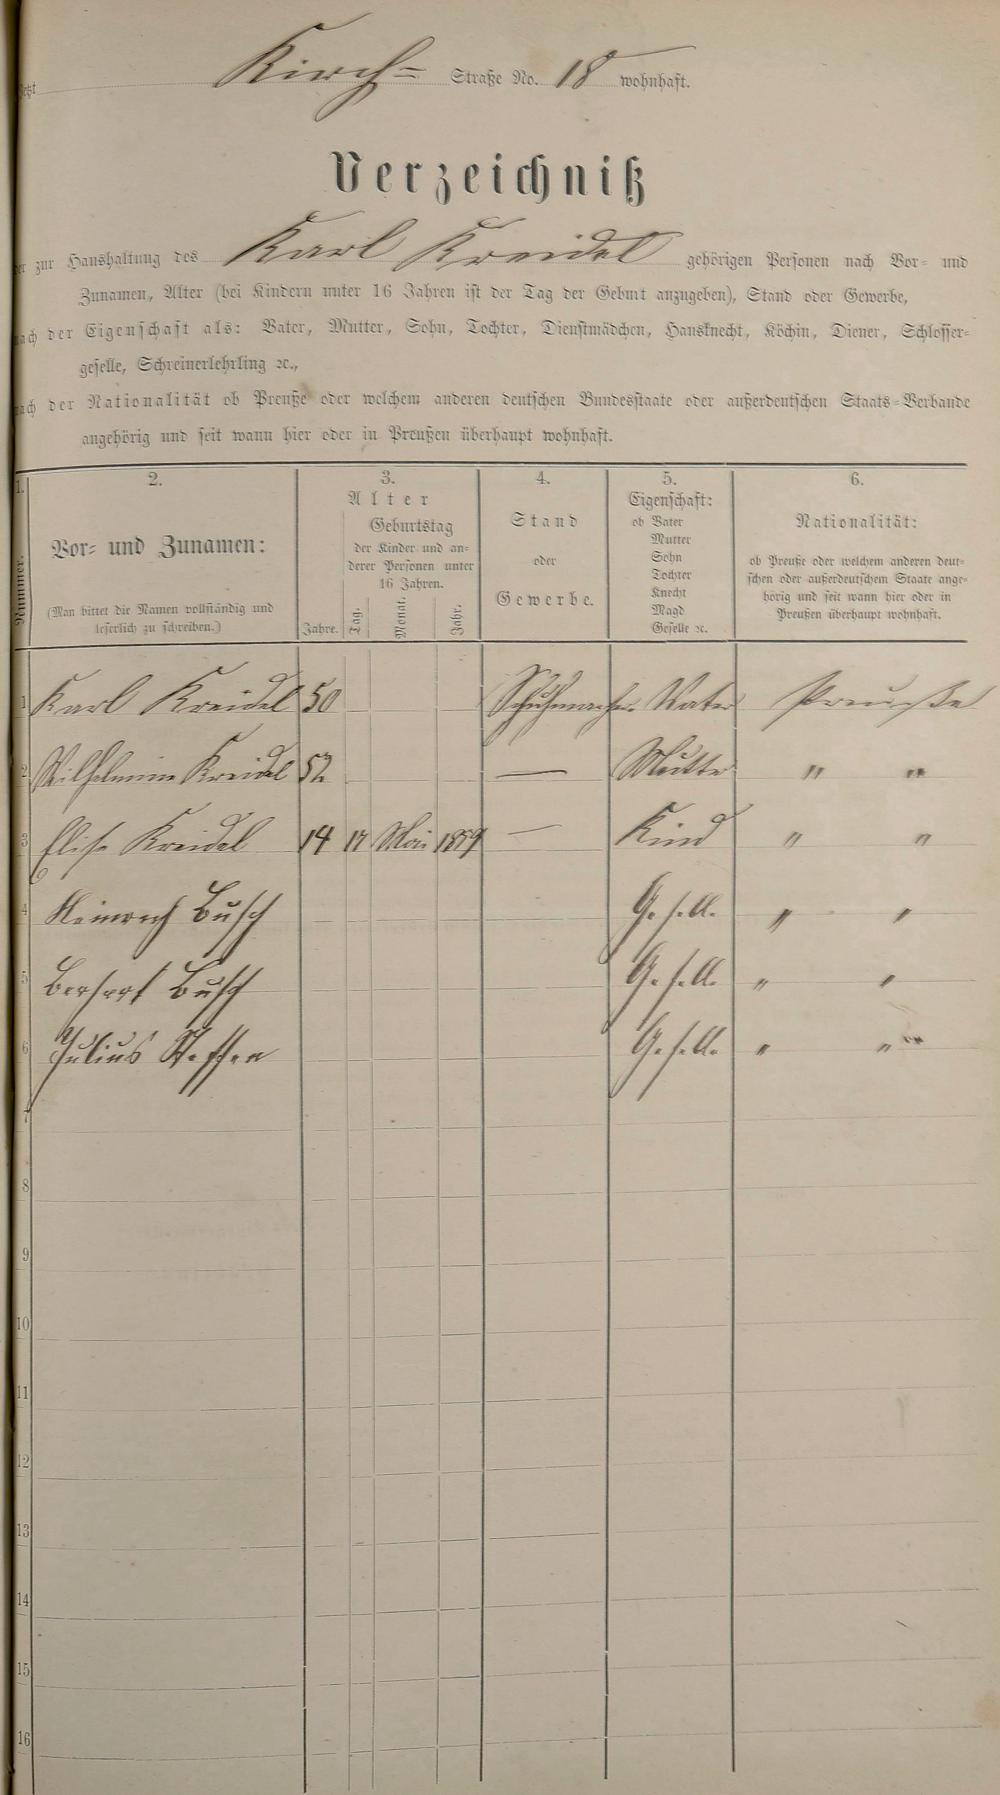 jetzt Kirch= Straße No. 18 wohnhaft.
Verzeichniß
der zur Haushaltung des Karl Kreidel gehörigen Personen nach Vor= und
Zunamen, Alter (bei Kindern unter 16 Jahren ist der Tag der Geburt anzugeben), Stand oder Gewerbe,
nach der Eigenschaft als: Vater, Mutter, Sohn, Tochter, Dienstmädchen, Hausknecht, Köchin, Diener, Schlosser=
geselle, Schreinerlehrling ꝛc.,
nach der Nationalität ob Preuße oder welchem anderen deutschen Bundesstaate oder außerdeutschen Staats=Verbande
angehörig und seit wann hier oder in Preußen überhaupt wohnhaft.
1. 2. 3. 4. 5. 6.
Nummer.
Vor= und Zunamen:
(Man bittet die Namen vollständig und
leserlich zu schreiben.)
Alter
Geburtstag
der Kinder und an=
derer Personen unter
16 Jahren.
Jahre. Tag. Monat. Jahr.
Stand
oder
Gewerbe.
Eigenschaft:
ob Vater
Mutter
Sohn
Tochter
Knecht
Magd
Geselle ꝛc.
Nationalität:
ob Preuße oder welchem anderen deut=
schen oder außerdeutschem Staate ange=
hörig und seit wann hier oder in
Preußen überhaupt wohnhaft.
1 Karl Kreidel 50 Schuhmacher Vater Preuße
2 Wilhelmine Kreidel 52 — Mutter " "
3 Elise Kreidel 14 17 Mai 1859 — Kind " "
4 Heinrich Busch Geselle " "
5 Busch Geselle " "
6 Julius Steffen Geselle " "
7
8
9
10
11
12
13
14
15
16